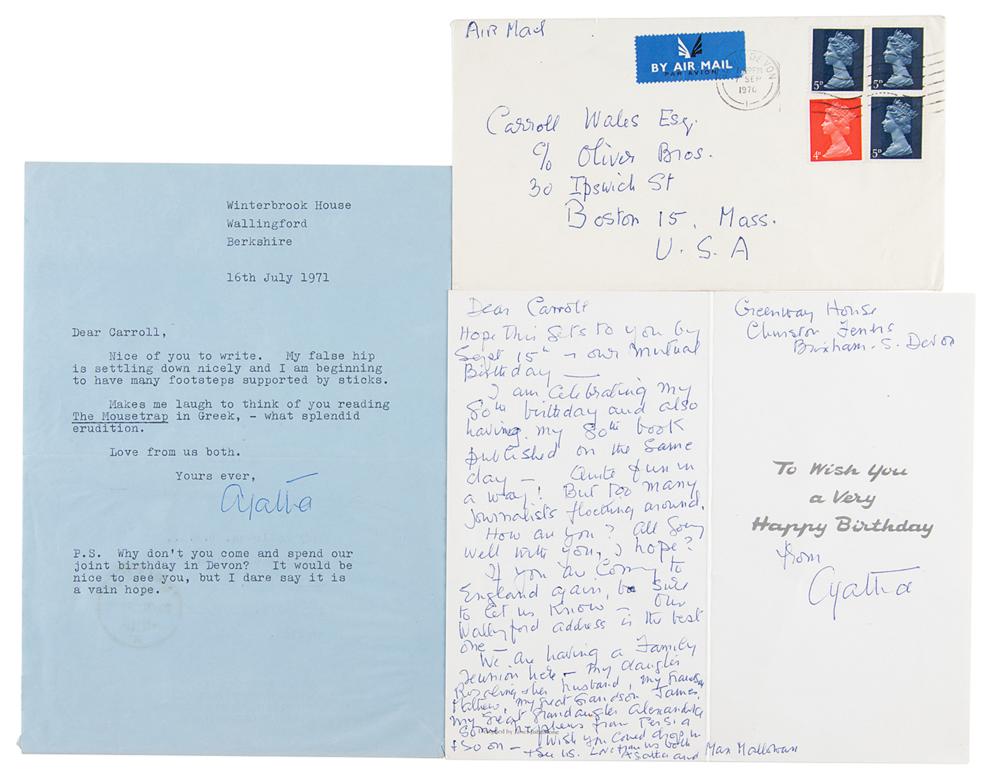 Air Mail
BY AIR MAIL
PAR AVION
DEVON
SEP
1970
5P
5P
4P
5P
Carroll Wales Esq.
c/o Oliver Bros.
30 Ipswich St
Boston 15, Mass.
U.S.A
Winterbrook House
Wallingford
Berkshire
16th July 1971
Dear Carroll,
Nice of you to write. My false hip
is settling down nicely and I am beginning
to have many footsteps supported by sticks.
Makes me laugh to think of you reading
The Mousetrap in Greek, - what splendid
erudition.
Love from us both.
Yours ever,
Agatha
P.S. Why don't you come and spend our
joint birthday in Devon? It would be
nice to see you, but I dare say it is
a vain hope.
Dear Carroll
Hope this gets to you by
Sept 15th - our mutual
Birthday —
I am celebrating my
80th birthday and also
having my 80th book
published on the same
day — Quite fun in
a way! But too many
journalists flocking around.
How are you? All going
well with you, I hope?
If you are coming to
England again, be sure
to let us know — Our
Wallingford address is the best
one —
We are having a Family
reunion here - my daughter
Rosalind & her husband, my Grandson
Mathew, my Great Grandson James,
my Great Grandaughter Alexandra
some nephews from Persia
& so on — Wish you could drop in
& see us. Love from us both
Agatha and Max Mallowan
Greenway House
Churston Ferrers
Brixham. S. Devon
To Wish You
a Very
Happy Birthday
from
Agatha